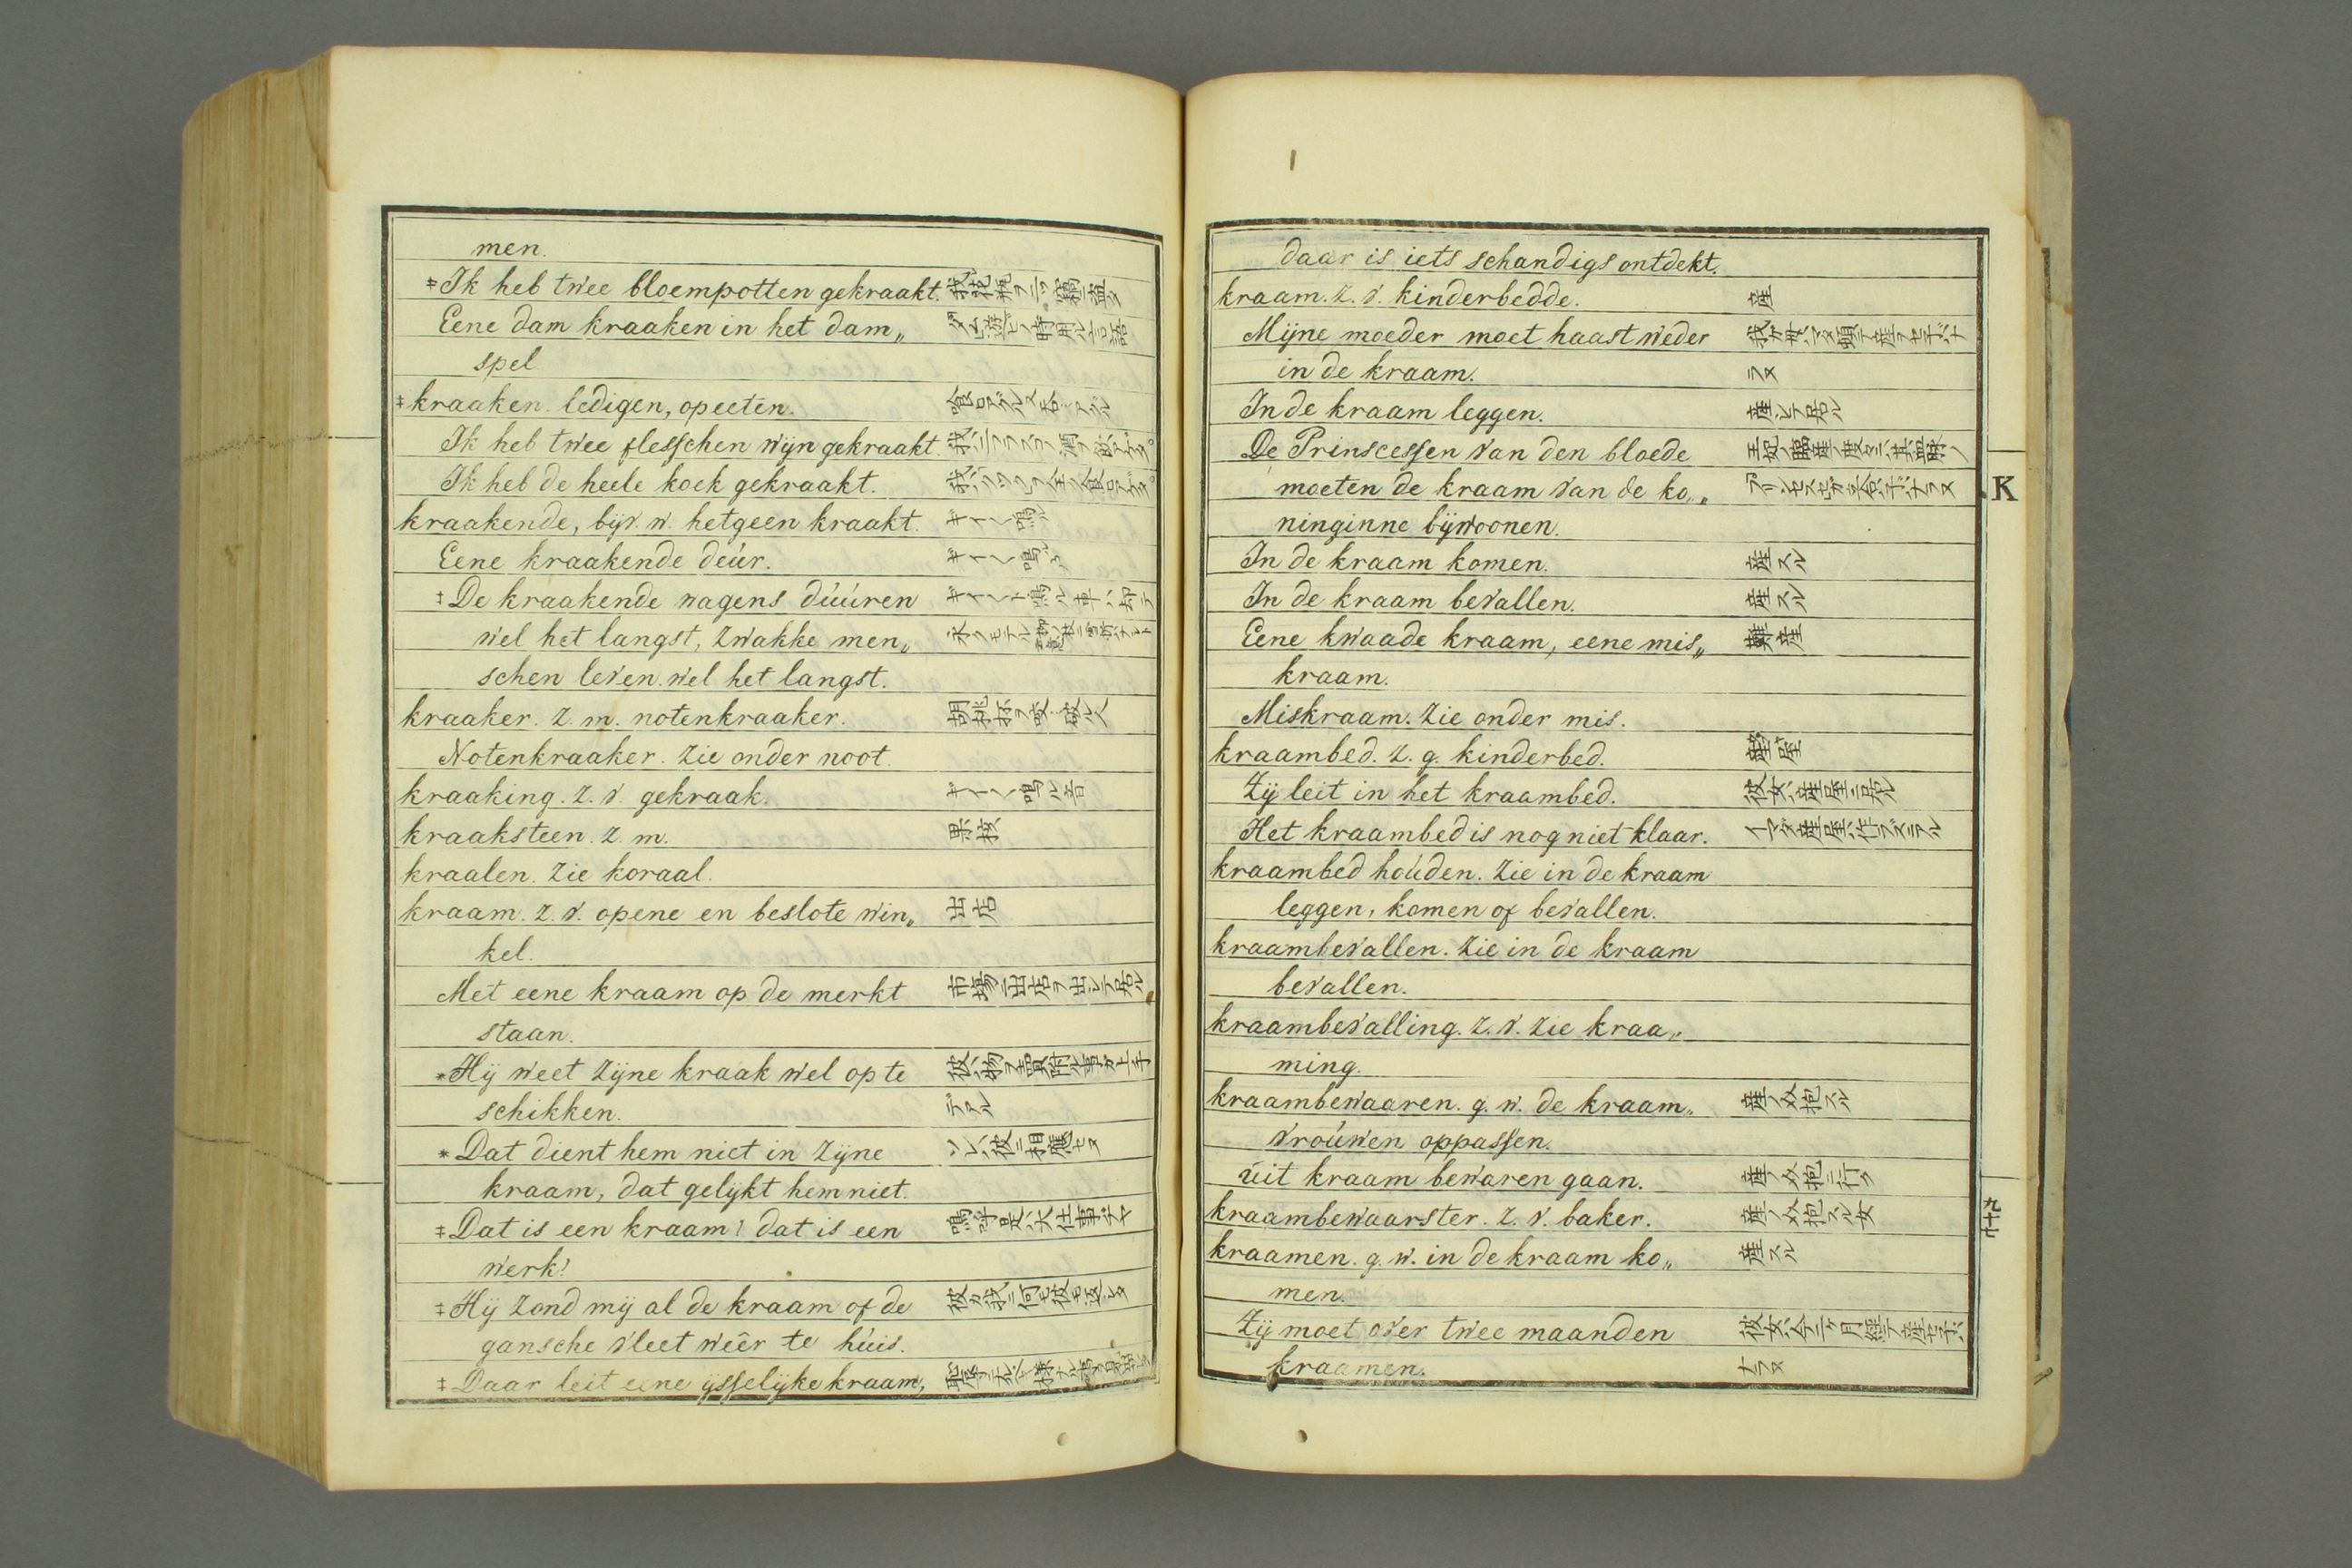 men.
‡Ik heb twee bloempotten gekraakt. 我花瓶ヲ二ツ竊盗タ
Eene dam kraaken in het dam„ ダム遊ビノ時用ル言語
spel
‡kraaken. ledigen, opeeten.
Ik heb twee flesschen wijn gekraakt.
Ik heb de heele koek gekraakt.
kraakende, bijv. w. hetgeen kraakt. ギー〱鳴ル
Eene kraakende deúr. ギー〱鳴ル戸
‡De kraakende wagens dúúren ギー〱ト鳴ル車ハ却テ
wel het langst, zwakke men„
schen leven wel het langst.
kraaker. z. m. notenkraaker.
Notenkraaker. zie onder noot.
kraaking. z. v. gekraak. ギー〱鳴ル音
kraaksteen. z. m. 果核
kraalen. zie koraal.
kraam. z. v. opene en beslote win„ 出店
kel.
Met eene kraam op de merkt 市場ニ出店ヲ出シテ居ル
staan.
*Hij weet zijne kraak wel op te 彼ハ物ヲ賣附ル事ガ上手
schikken. デアル
*Dat dient hem niet in zijne ソレハ彼ニ相應セヌ
kraam, dat gelijkt hem niet.
‡Dat is een kraam! dat is een 嗚呼是ハ大仕事ヂヤ
werk!
‡Hij zond mij al de kraam of de 彼ガ我ニ何モ彼モ返シタ
gansche vleet wêêr te húis.
‡Daar leit eene ijsselijke kraam,
daar is iets schandigs ontdekt.
kraam. z. v. kinderbedde. 産
Mijne moeder moet haast weder 我ガ母ハマタ頓テ産ヲセ子バナ
in de kraam. ラヌ
In de kraam leggen. 産シテ居ル
De Prinscessen van den bloede
moeten de kraam van de ko„
ninginne bijwoonen.
In de kraam komen. 産スル
In de kraam bevallen. 産スル
Eene kwaade kraam, eene mis„ 難産
kraam.
Miskraam. zie onder mis.
kraambed. z. g. kinderbed. 産屋
Zij leit in het kraambed. 彼女ハ産屋ニ居ル
Het kraambed is nog niet klaar. イマダ産屋ハ作ラズニアル
kraambed hoúden. zie in de kraam
leggen, komen of bevallen.
kraambevallen. zie in de kraam
bevallen.
kraambevalling. z. v. zie kraa„
ming.
kraambewaaren. g. w. de kraam„ 産ノ介抱スル
vroúwen oppassen.
úit kraam bewaren gaan. 産ノ介抱ニ行ク
kraambewaarster. z. v. baker. 産ノ介抱スル女
kraamen. g. w. in de kraam ko„ 産スル
men.
Zij moet over twee maanden 彼女ハ今二ケ月經テ産セ子バ
kraamen. ナラヌ
K
九十七